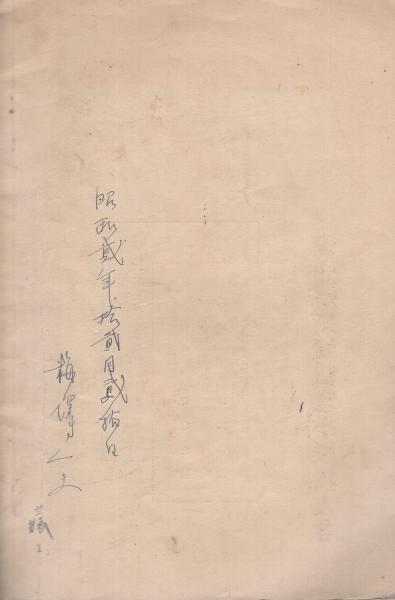 昭和貳年拾貳月貳拾日
梅澤
藏